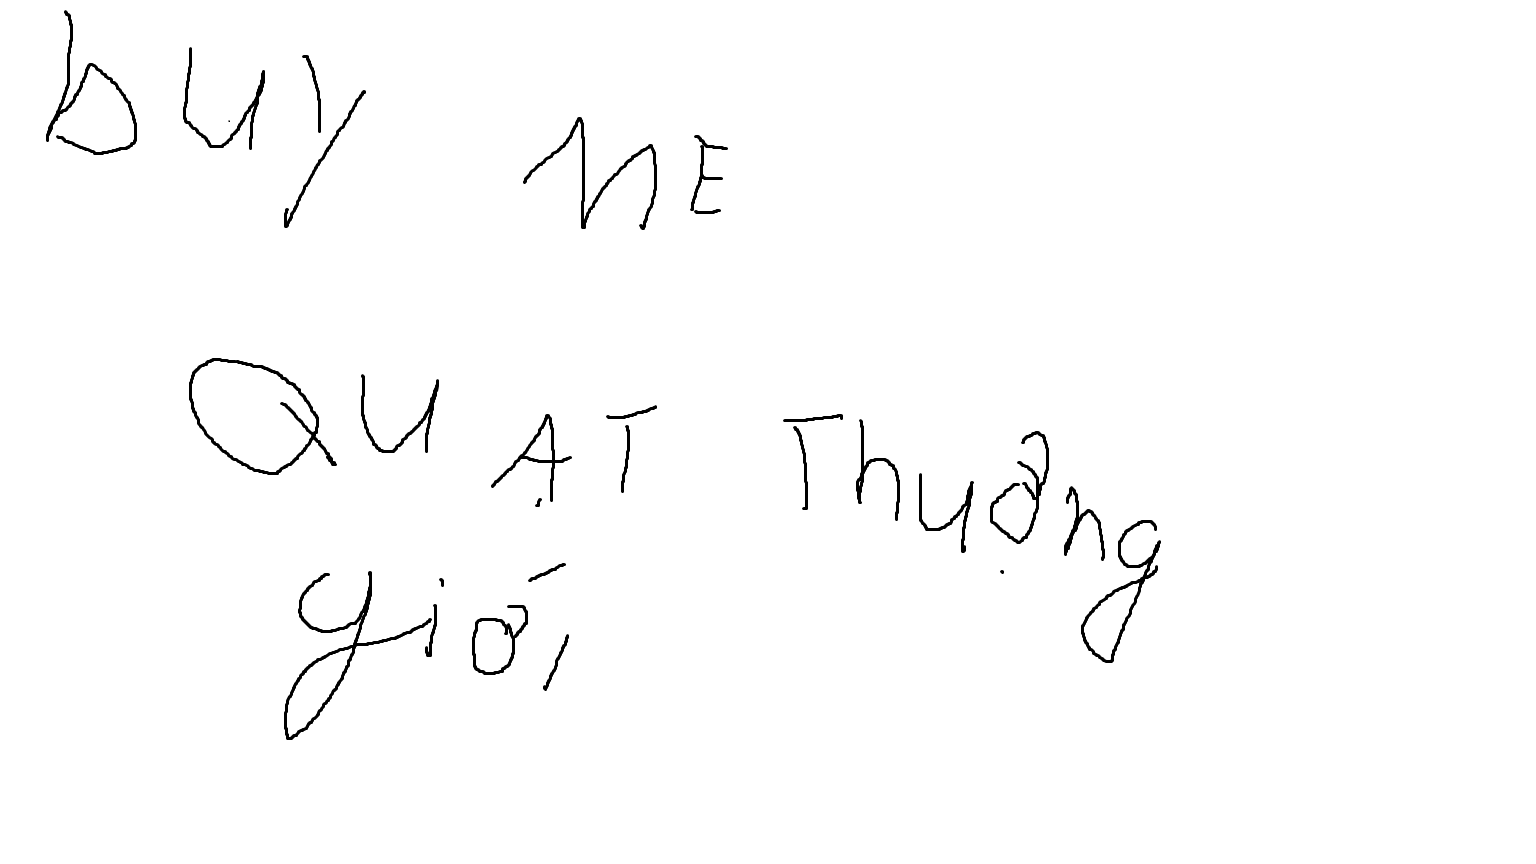 buy ME
QUẠT Thượng
giới